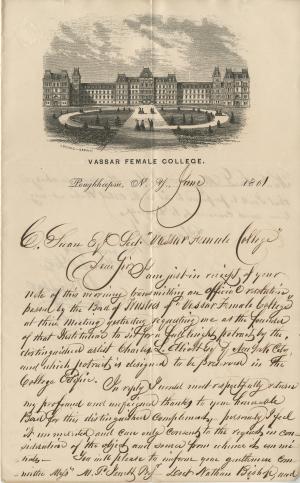 VASSAR FEMALE COLLEGE.
Poughkeepsie, N. Y. June 1861
C. Swan Esq Sect. "Vassar Female College"
Dear Sir, I am just in receipt of your
note of this morning transmitting an official resolution
passed by the Board of Trustees of "Vassar Female College"
at their Meeting yesterday requesting me as the founder
of that Institution to sit for a full length portrait by the
distinguished artist Charles L. Elliott Esq of New York City
and which portrait is designed to be preserved in The
College Edifice.
In reply I would most respectfully return
my profound and unfeigned thanks to your honorable
Board for this distinguished Compliment, personally I feel
it unmerited and can only Consent to the request in con-
sideration of the object and source from whence it ema-
nates—
You will please to inform your gentlemen com-
mittee Messrs M. P. Jewett Nathan Bishop and